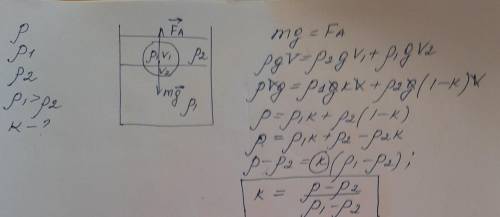 ρ
ρ1
ρ2
ρ1>ρ2
K-?
F⃗A
ρ, V1
ρ2
V2
mg⃗
ρ1
mg = FA
ρgV = ρ2gV1 + ρ1gV2
ρVg = ρ1gKV + ρ2g(1-K)V
ρ = ρ1K + ρ2(1-K)
ρ = ρ1K + ρ2 - ρ2K
ρ-ρ2 = K(ρ1-ρ2);
K = (ρ-ρ2)/(ρ1-ρ2)